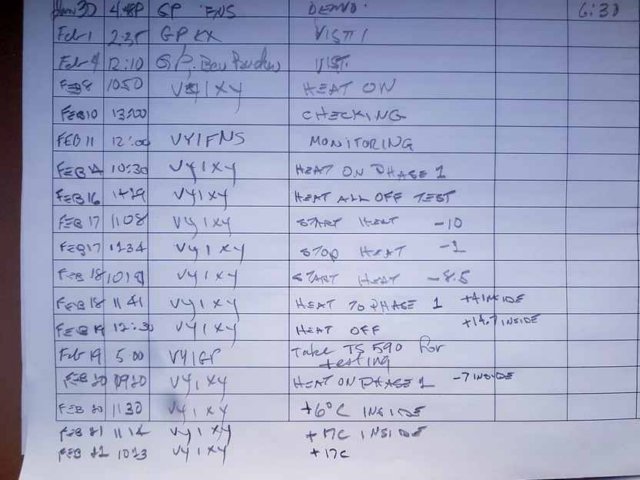 Jan 30 4:48P GP FNS DEMO. 6:30
Feb 1 2:35 GP KX VISIT 1
Feb 4 12:10 GP, Visit
FEB 8 1050 VY1XY HEAT ON
FEB 10 13:00 CHECKING
FEB 11 12:00 VY1FNS MONITORING
FEB 14 10:30 VY1XY HEAT ON PHASE 1
FEB 16 1429 VY1XY HEAT ALL OFF TEST
FEB 17 1108 VY1XY START HEAT -10
FEB 17 1234 VY1XY STOP HEAT -1
FEB 18 1019 VY1XY START HEAT -8.5
FEB 18 1141 VY1XY HEAT TO PHASE 1 +4 INSIDE
FEB 19 12:30 VY1XY HEAT OFF +14.7 INSIDE
Feb 19 5:00 VY1GP Take TS 590 for testing
FEB 20 0920 VY1XY HEAT ON PHASE 1 -7 INSIDE
FEB 20 1130 VY1XY +6°C INSIDE
FEB 21 1114 VY1XY +17C INSIDE
FEB 1013 VY1XY +17C